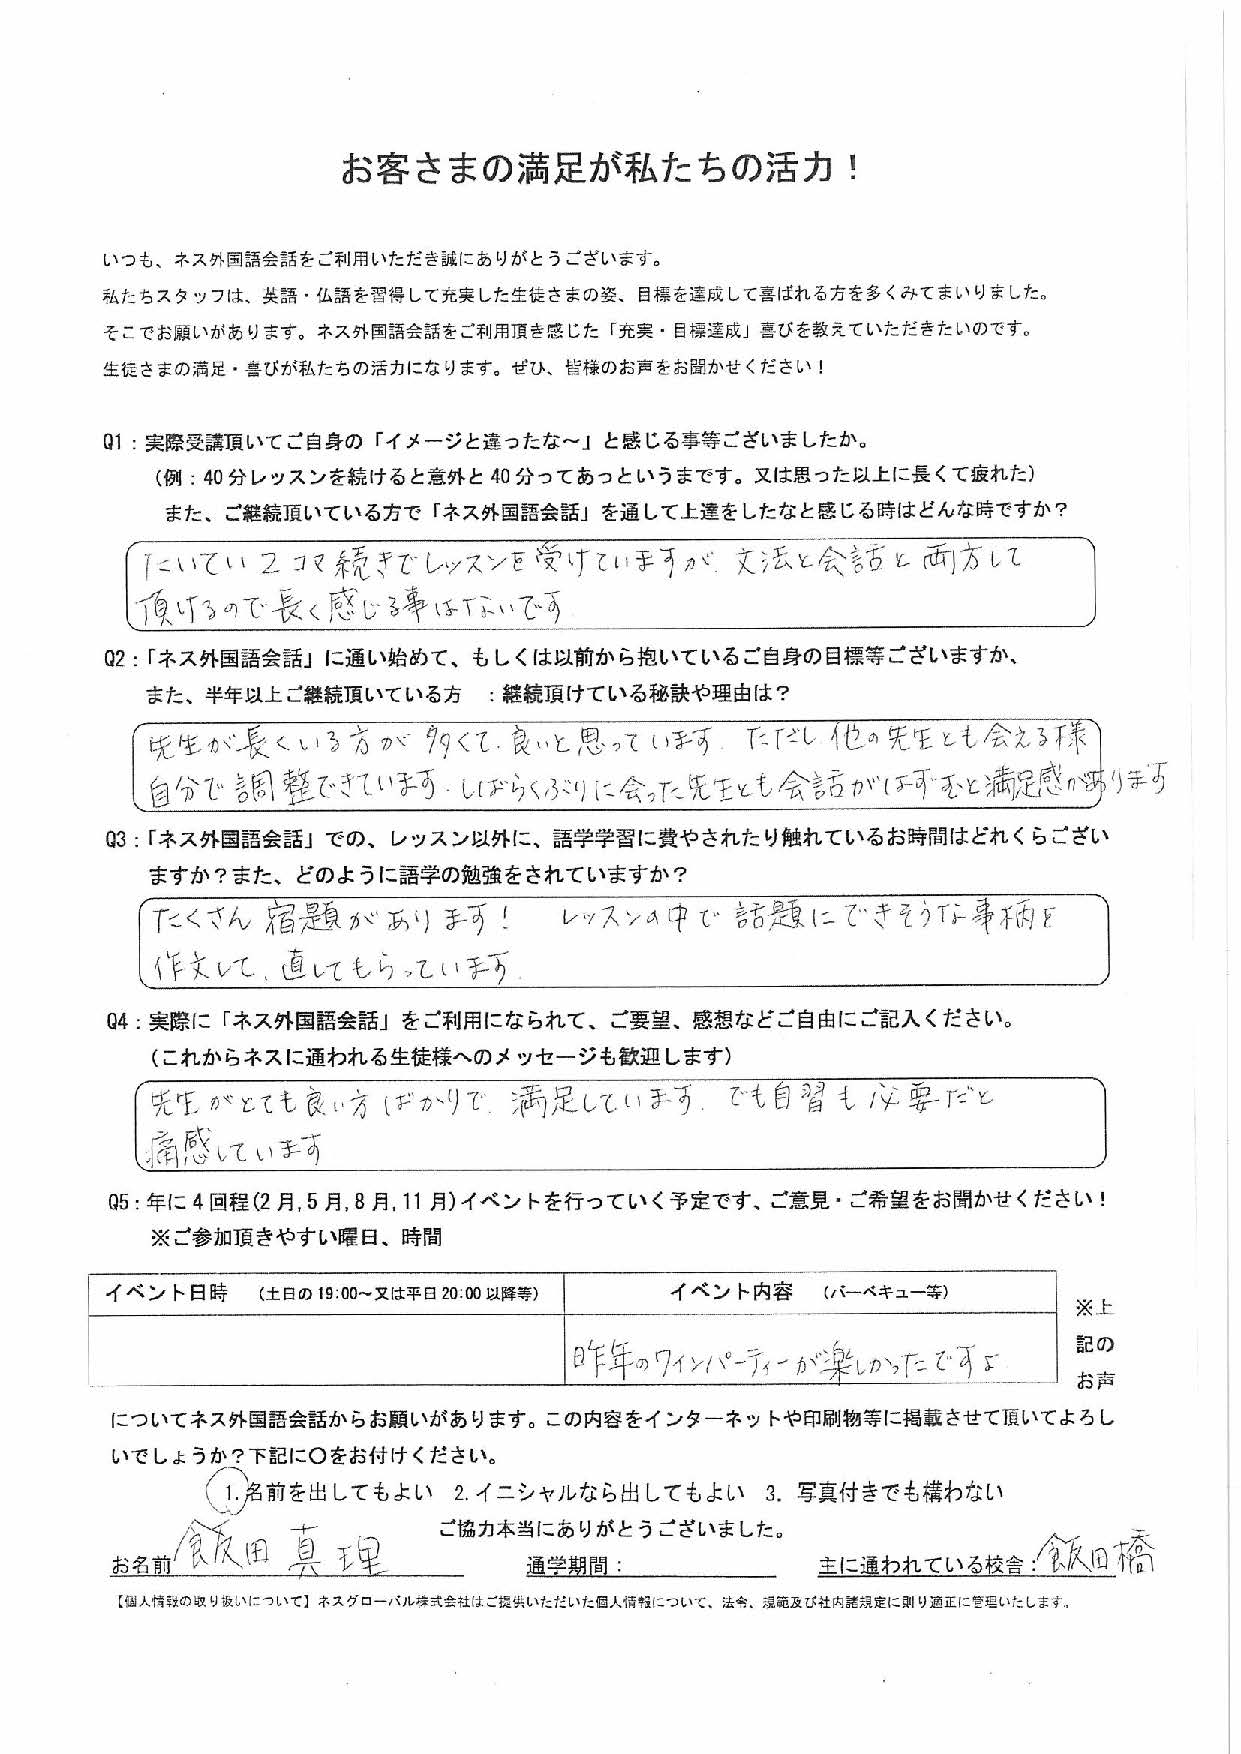 お客さまの満足が私たちの活力！
いつも、ネス外国語会話をご利用いただき誠にありがとうございます。
私たちスタッフは、英語・仏語を習得して充実した生徒さまの姿、目標を達成して喜ばれる方を多くみてまいりました。
そこでお願いがあります。ネス外国語会話をご利用頂き感じた「充実・目標達成」喜びを教えていただきたいのです。
生徒さまの満足・喜びが私たちの活力になります。ぜひ、皆様のお声をお聞かせください！
Q1：実際受講頂いてご自身の「イメージと違ったな～」と感じる事等ございましたか。
（例：40分レッスンを続けると意外と40分ってあっというまです。又は思った以上に長くて疲れた）
また、ご継続頂いている方で「ネス外国語会話」を通して上達をしたなと感じる時はどんな時ですか？
たいてい2コマ続きでレッスンを受けていますが、文法と会話と両方して
頂けるので長く感じる事はないです
Q2：「ネス外国語会話」に通い始めて、もしくは以前から抱いているご自身の目標等ございますか、
また、半年以上ご継続頂いている方　：継続頂けている秘訣や理由は？
先生が長くいる方が多くて、良いと思っています。ただし他の先生とも会える様
自分で調整できています。しばらくぶりに会った先生とも会話がはずむと満足感があります
Q3：「ネス外国語会話」での、レッスン以外に、語学学習に費やされたり触れているお時間はどれくらござい
ますか？また、どのように語学の勉強をされていますか？
たくさん宿題があります！　レッスンの中で話題にできそうな事柄を
作文して、直してもらっています。
Q4：実際に「ネス外国語会話」をご利用になられて、ご要望、感想などご自由にご記入ください。
（これからネスに通われる生徒様へのメッセージも歓迎します）
先生がとても良い方ばかりで、満足しています。でも自習も必要だと
痛感しています
Q5：年に4回程(2月,5月,8月,11月)イベントを行っていく予定です、ご意見・ご希望をお聞かせください！
※ご参加頂きやすい曜日、時間
イベント日時　（土日の19:00～又は平日20:00以降等）　イベント内容　（バーベキュー等）
昨年のワインパーティーが楽しかったですよ
※上
記の
お声
についてネス外国語会話からお願いがあります。この内容をインターネットや印刷物等に掲載させて頂いてよろし
いでしょうか？下記に○をお付けください。
1.名前を出してもよい　2.イニシャルなら出してもよい　3. 写真付きでも構わない
ご協力本当にありがとうございました。
お名前 飯田 真理　通学期間：　主に通われている校舎：飯田橋
【個人情報の取り扱いについて】ネスグローバル株式会社はご提供いただいた個人情報について、法令、規範及び社内諸規定に則り適正に管理いたします。